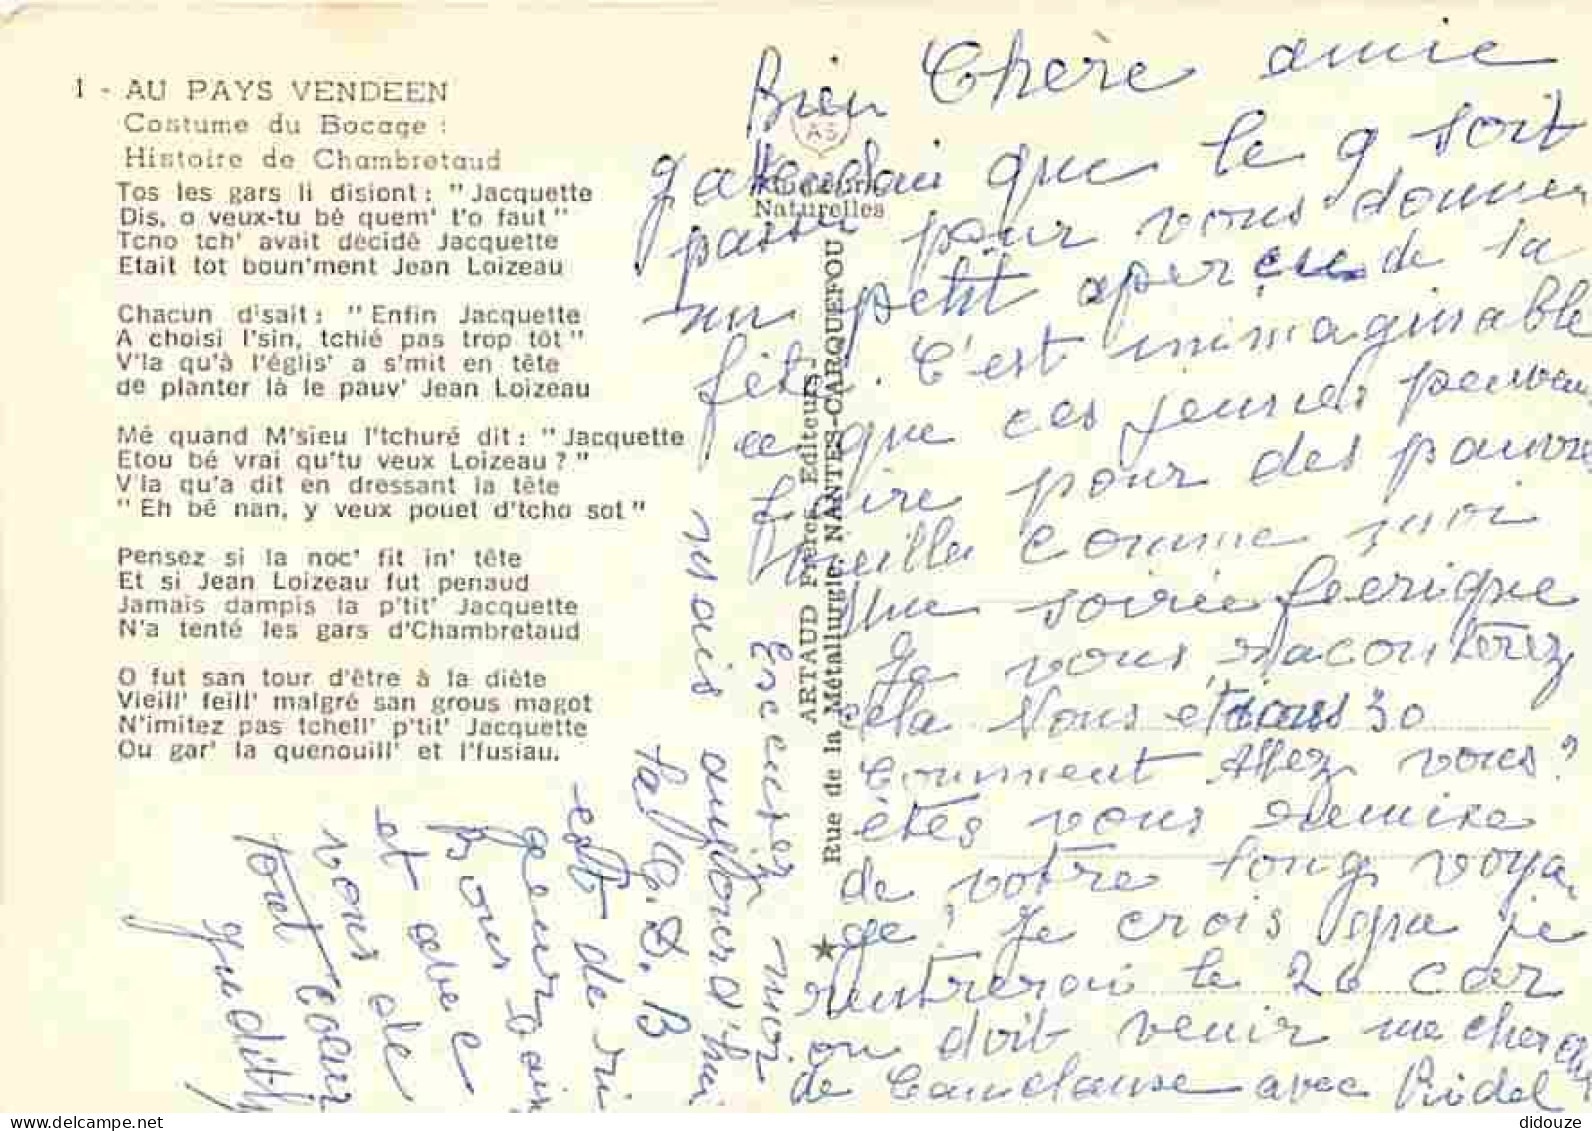 1 - AU PAYS VENDEEN
Costume du Bocage :
Histoire de Chambretaud
Tos les gars li disiont : " Jacquette
Dis, o veux-tu bé quem' t'o faut "
Tcno tch' avait décidé Jacquette
Etait tot boun'ment Jean Loizeau
Chacun d'sait : " Enfin Jacquette
A choisi l'sin, tchié pas trop tôt "
V'la qu'à l'églis' a s'mit en tête
de planter là le pauv' Jean Loizeau
Mé quand M'sieu l'tchuré dit : " Jacquette
Etou bé vrai qu'tu veux Loizeau ? "
V'la qu'a dit en dressant la tête
" Eh bé nan, y veux pouet d'tcho sot "
Pensez si la noc' fit in' tête
Et si Jean Loizeau fut penaud
Jamais dampis la p'tit' Jacquette
N'a tenté les gars d'Chambretaud
O fut san tour d'être à la diète
Vieill' feill' malgré san grous magot
N'imitez pas tchell' p'tit' Jacquette
Ou gar' la quenouill' et l'fusiau.
AS
Naturelles
ARTAUD Frères, Editeurs
Rue de la Métallurgie, NANTES-CARQUEFOU
Bien Chère amie
J'attendais que le 9 soit
passé pour vous donner
un petit aperçu de la
fête. C'est inimaginable
ce que ces jeunes peuvent
faire pour des pauvres
vieilles comme moi
Une soirée feerique
Je vous raconterez
cela Nous étions 30
Comment Allez vous?
êtes vous remise
de votre long voya
ge? Je crois que je
rentrerai le 20 car
on doit venir me chercher
de avec
Excusez moi
mais aujourd'hui
la
est de ri
gueur
Bons
et avec
vous de
tout coeur
Judith
didouze